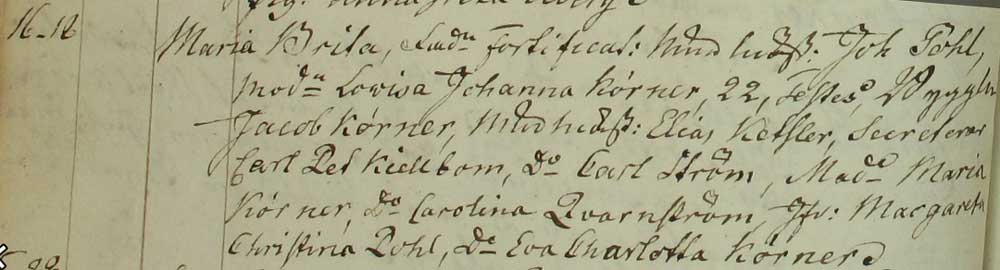 16-18 Maria Brita, Fadn fortificat: Mur Joh Pohl,
Modn Lovisa Johanna Körner, 22, Testes, Byggm
Jacob Körner, Elias Kessler, Secreterar
Carl Pet Kiellbom, Do Carl Ström, Mad Maria
Körner, Do Carolina Qvarnström, Jfr: Margareta
Christina Pohl, De Eva Charlotta Körner